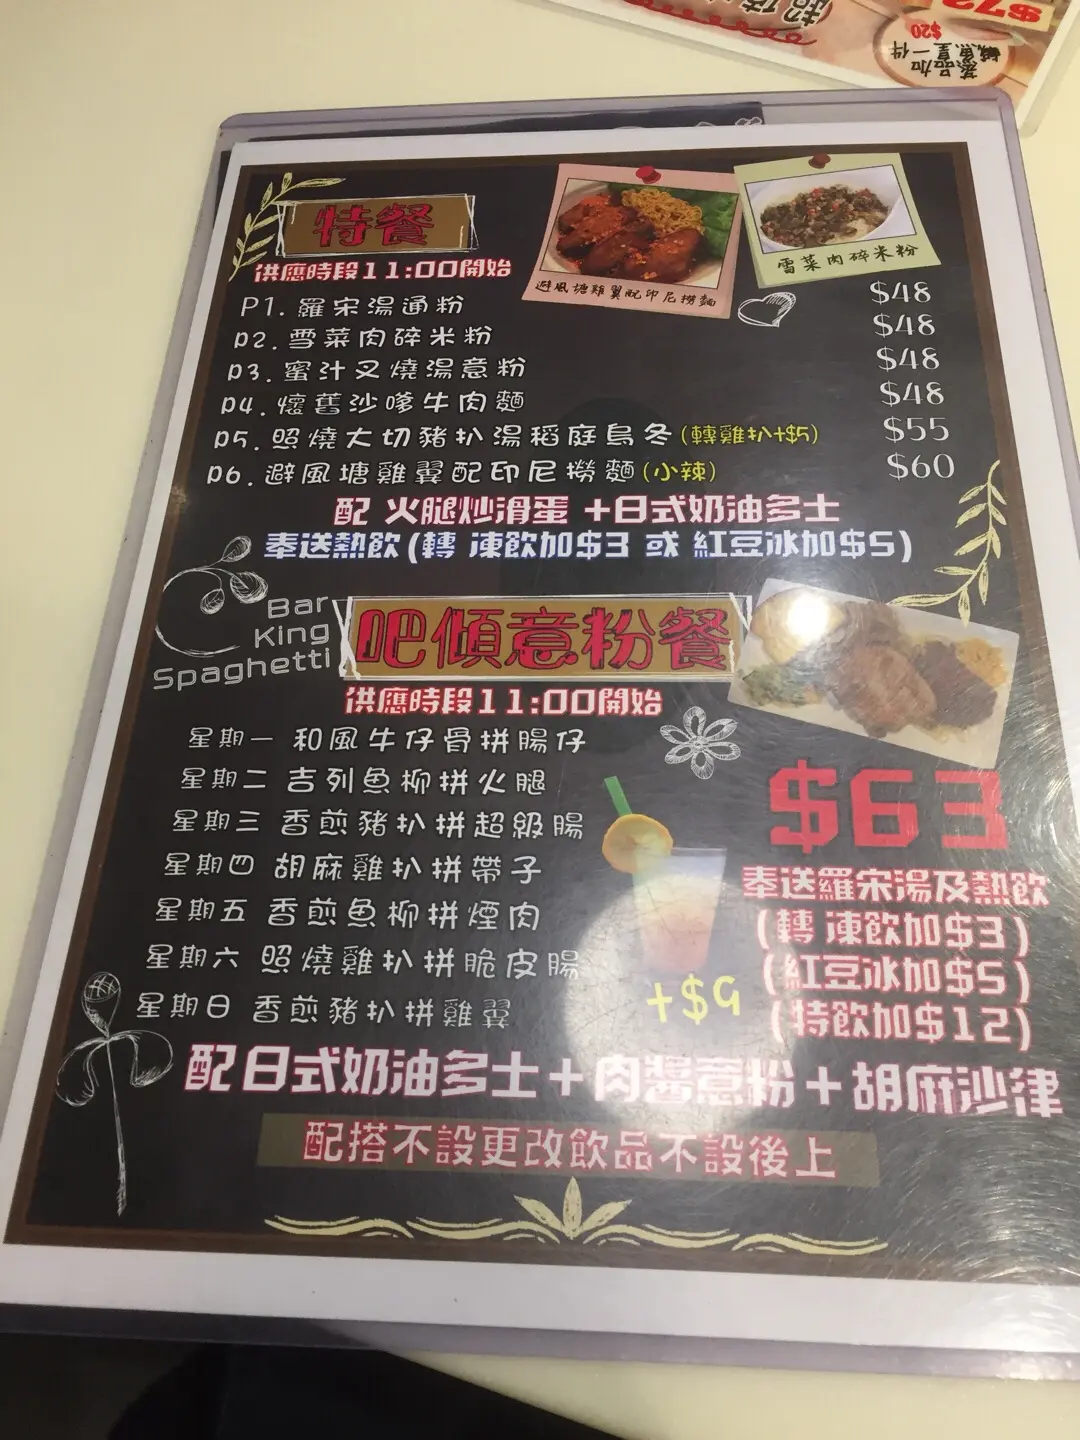 $72
蒸品加
鹹魚皇一件
$20
特餐
供應時段11:00開始
避風塘雞翼配印尼撈麵
雪菜肉碎米粉
P1. 羅宋湯通粉 $48
P2. 雪菜肉碎米粉 $48
P3. 蜜汁叉燒湯意粉 $48
P4. 懷舊沙嗲牛肉麵 $48
P5. 照燒大切豬扒湯稻庭烏冬(轉雞扒+$5) $55
P6. 避風塘雞翼配印尼撈麵(小辣) $60
配 火腿炒滑蛋 +日式奶油多士
奉送熱飲(轉 凍飲加$3 或 紅豆冰加$5)
Bar
King
Spaghetti
吧傾意粉餐
供應時段11:00開始
星期一 和風牛仔骨拼腸仔
星期二 吉列魚柳拼火腿
星期三 香煎豬扒拼超級腸
星期四 胡麻雞扒拼帶子
星期五 香煎魚柳拼煙肉
星期六 照燒雞扒拼脆皮腸
星期日 香煎豬扒拼雞翼
$63
奉送羅宋湯及熱飲
(轉 凍飲加$3)
(紅豆冰加$5)
(特飲加$12)
+$9
配日式奶油多士+肉醬意粉+胡麻沙律
配搭不設更改飲品不設後上